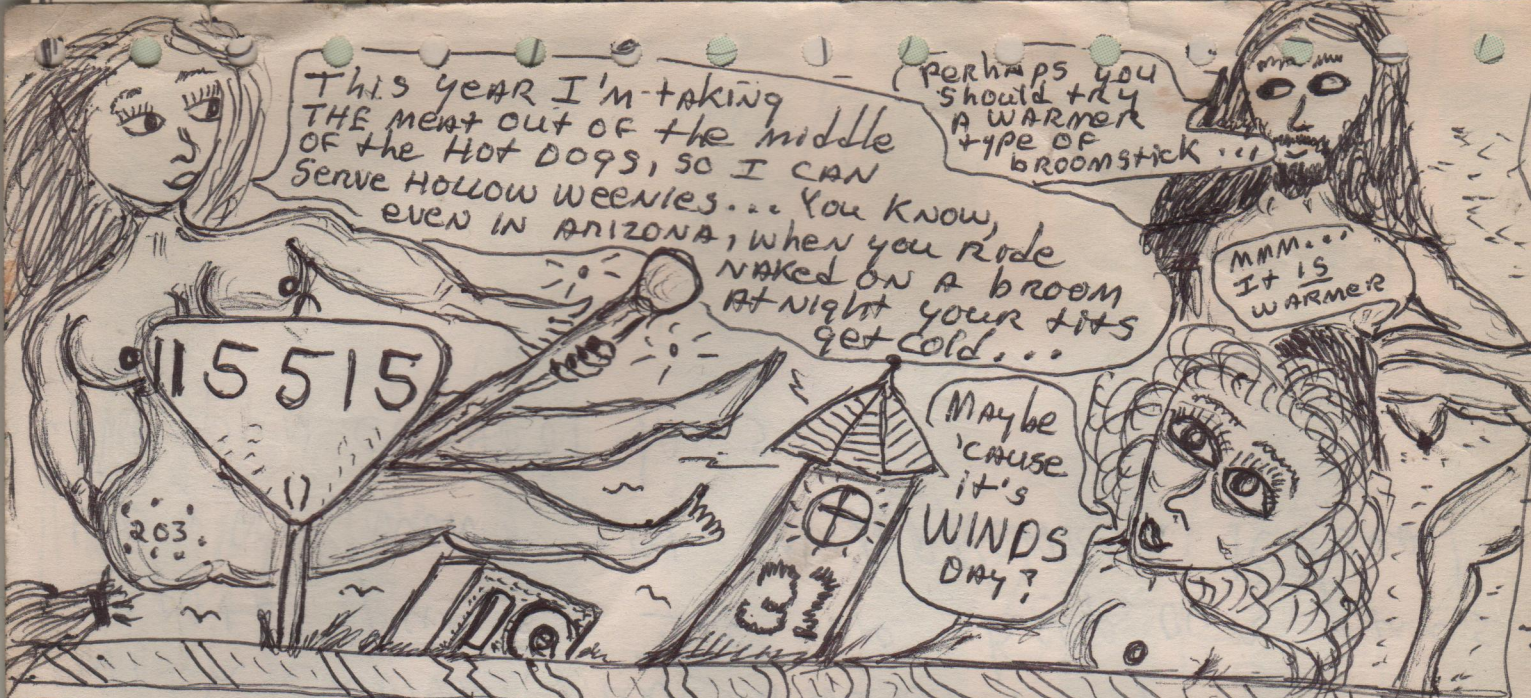 This year I'm taking
THE meat out of the middle
of the Hot Dogs, so I can
serve Hollow Weenies... You know,
even in Arizona, when you ride
naked on a broom
at night your tits
get cold....
Perhaps you
should try
a warmer
type of
broomstick ...
MMM...
It is
warmer
Maybe
'cause
it's
WINDS
DAY?
115515
203